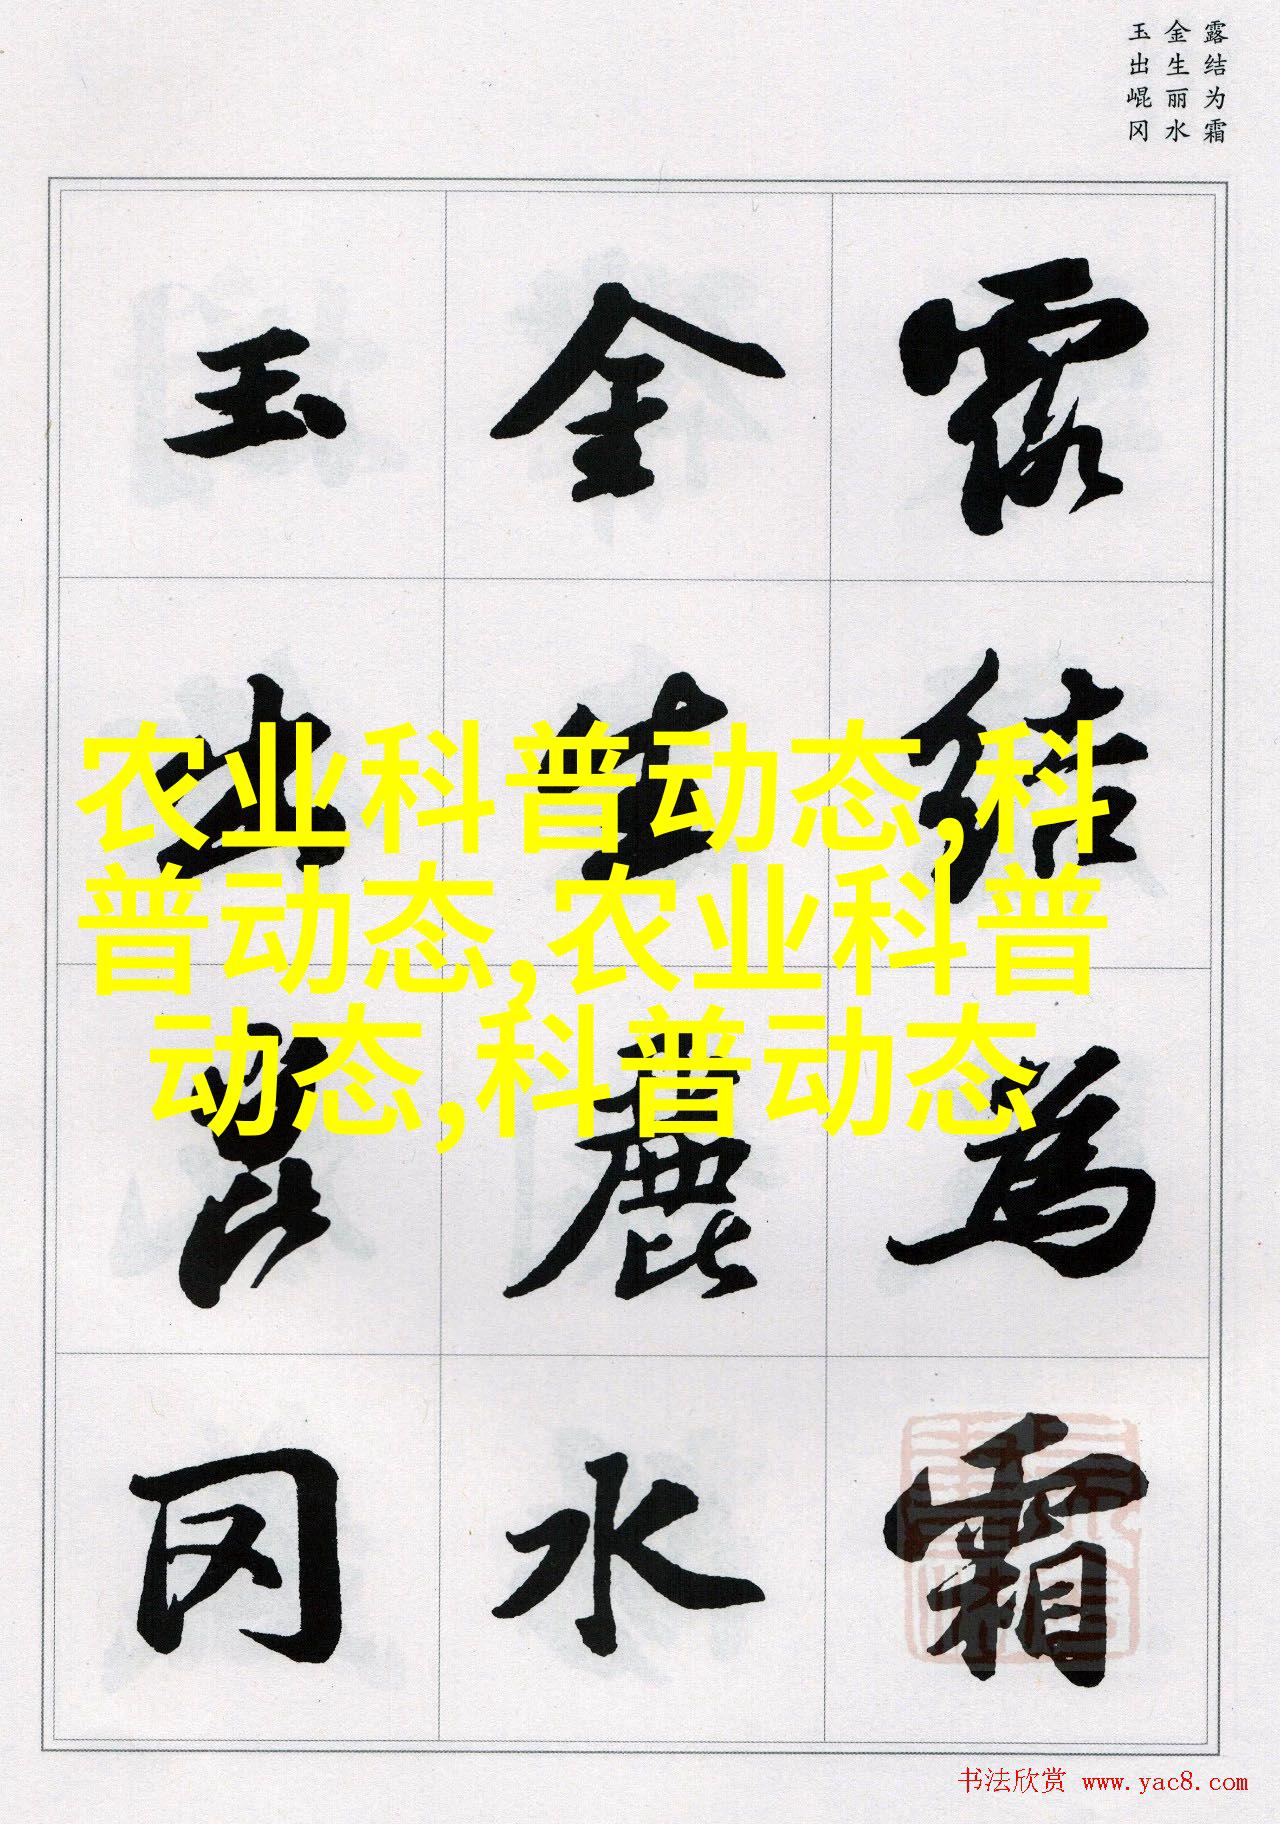 露结为霜
金生丽水
玉出崐冈
露結爲霜
金生麗水
玉出崑冈
农业科普动态,科
普动态,农业科普
动态,科普动态
书法欣赏 www.yac8.com